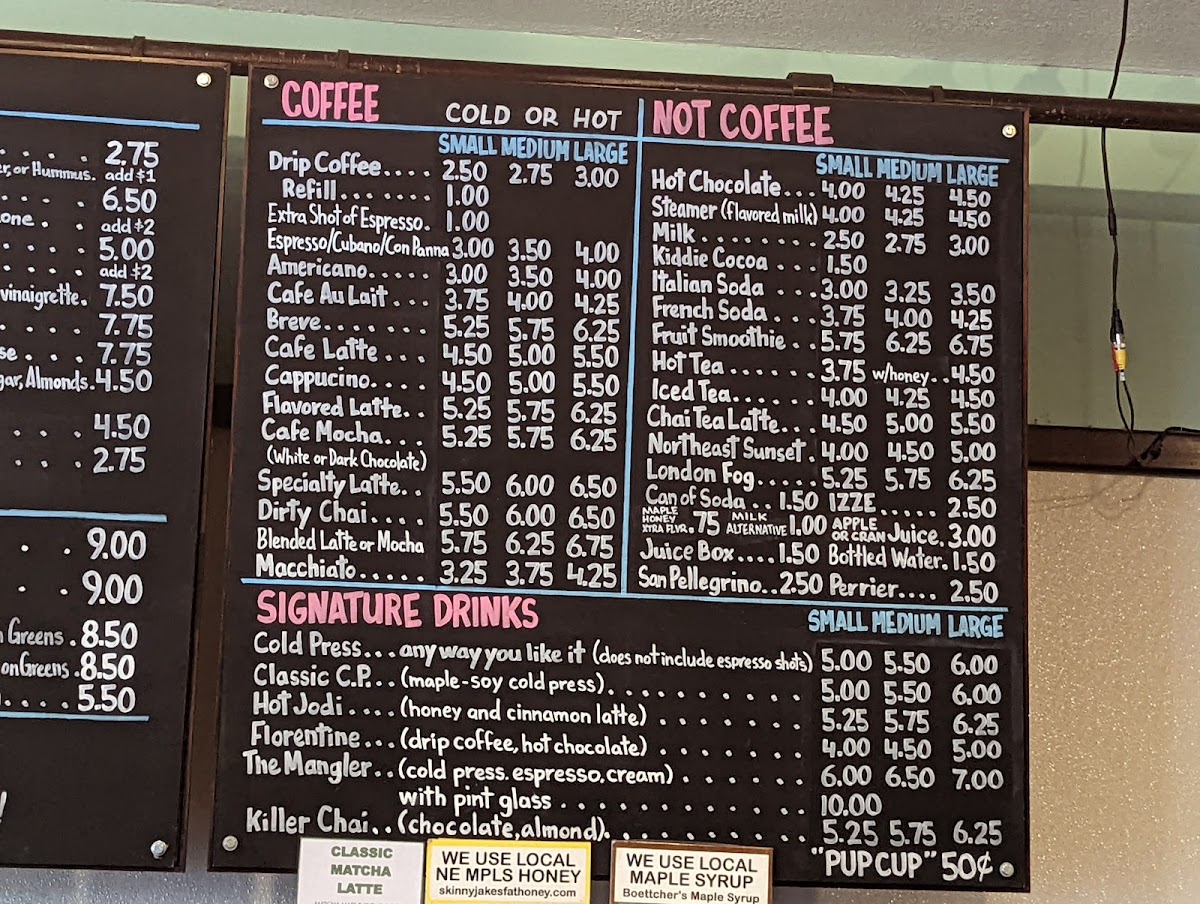 2.75
er, or Hummus. add $1
6.50
one . . add $2
5.00
add $2
vinaigrette. 7.50
7.75
se . . . 7.75
gar, Almonds. 4.50
4.50
2.75
9.00
9.00
Greens . 8.50
on Greens . 8.50
5.50
!
COFFEE COLD OR HOT
SMALL MEDIUM LARGE
Drip Coffee.... 2.50 2.75 3.00
Refill....... 1.00
Extra Shot of Espresso. 1.00
Espresso/Cubano/Con Panna 3.00 3.50 4.00
Americano..... 3.00 3.50 4.00
Cafe Au Lait ... 3.75 4.00 4.25
Breve....... 5.25 5.75 6.25
Cafe Latte .... 4.50 5.00 5.50
Cappucino.... 4.50 5.00 5.50
Flavored Latte.. 5.25 5.75 6.25
Cafe Mocha... 5.25 5.75 6.25
(White or Dark Chocolate)
Specialty Latte.. 5.50 6.00 6.50
Dirty Chai.... 5.50 6.00 6.50
Blended Latte or Mocha 5.75 6.25 6.75
Macchiato..... 3.25 3.75 4.25
NOT COFFEE
SMALL MEDIUM LARGE
Hot Chocolate... 4.00 4.25 4.50
Steamer (flavored milk) 4.00 4.25 4.50
Milk........ 2.50 2.75 3.00
Kiddie Cocoa ... 1.50
Italian Soda ... 3.00 3.25 3.50
French Soda.... 3.75 4.00 4.25
Fruit Smoothie.. 5.75 6.25 6.75
Hot Tea...... 3.75 w/honey.. 4.50
Iced Tea...... 4.00 4.25 4.50
Chai Tea Latte... 4.50 5.00 5.50
Northeast Sunset. 4.00 4.50 5.00
London Fog..... 5.25 5.75 6.25
Can of Soda .. 1.50 IZZE..... 2.50
MAPLE HONEY XTRA FLVR. .75 MILK ALTERNATIVE 1.00 APPLE OR CRAN Juice. 3.00
Juice Box.... 1.50 Bottled Water. 1.50
San Pellegrino.. 2.50 Perrier.... 2.50
SIGNATURE DRINKS SMALL MEDIUM LARGE
Cold Press... any way you like it (does not include espresso shots) 5.00 5.50 6.00
Classic C.P... (maple-soy cold press)......... 5.00 5.50 6.00
Hot Jodi .... (honey and cinnamon latte) ....... 5.25 5.75 6.25
Florentine... (drip coffee, hot chocolate) ....... 4.00 4.50 5.00
The Mangler.. (cold press. espresso, cream) ...... 6.00 6.50 7.00
with pint glass ........... 10.00
Killer Chai.. (chocolate, almond)......... 5.25 5.75 6.25
"PUP CUP" 50¢
CLASSIC
MATCHA
LATTE
WE USE LOCAL
NE MPLS HONEY
skinnyjakesfathoney.com
WE USE LOCAL
MAPLE SYRUP
Boettcher's Maple Syrup